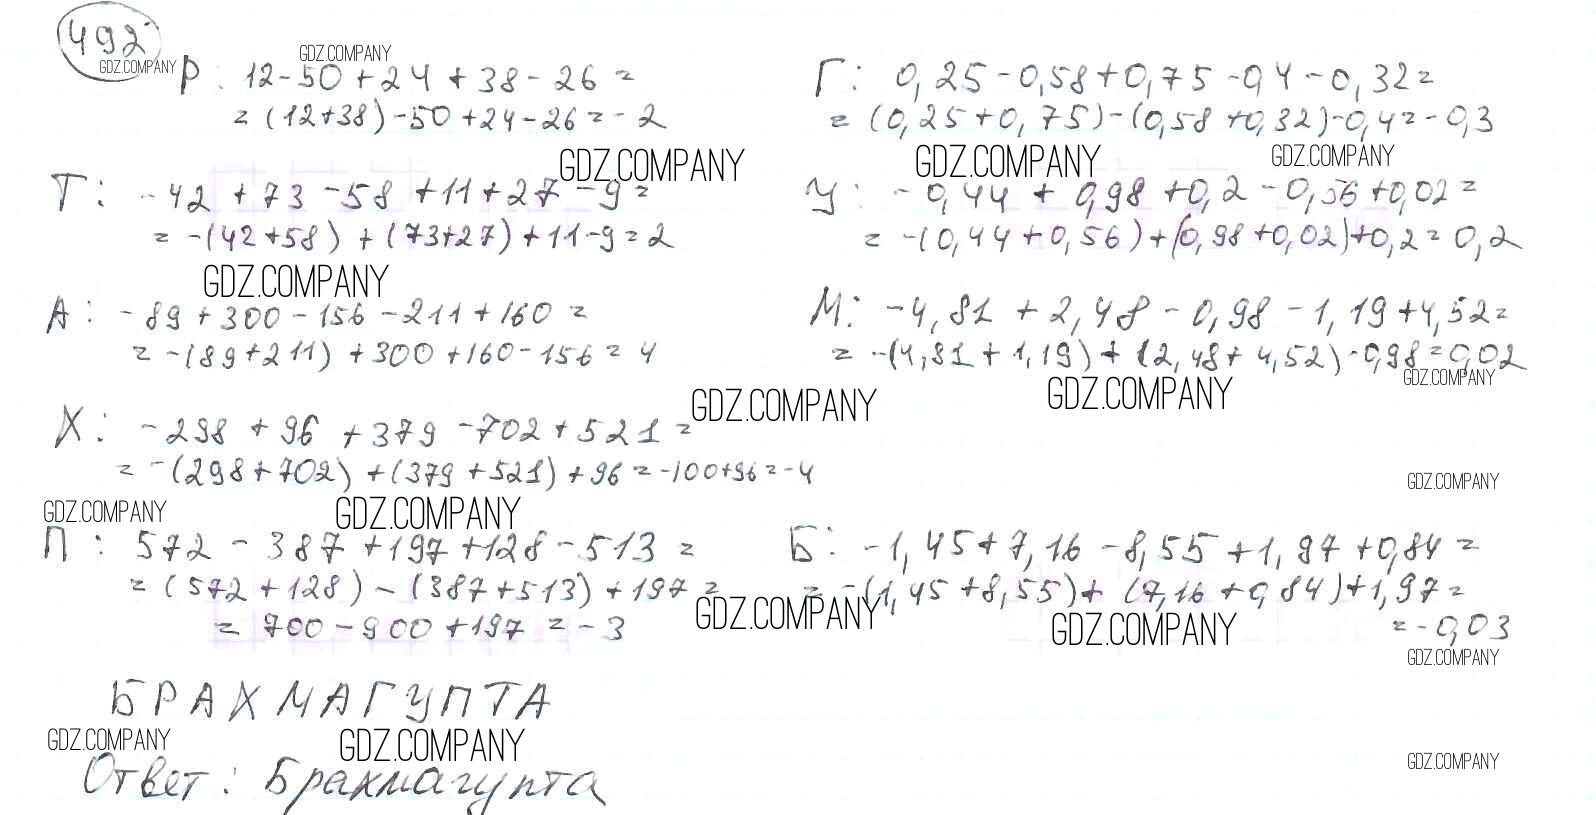 492
GDZ.COMPANY
GDZ.COMPANY
Р: 12-50+24+38-26=
=(12+38)-50+24-26=-2
GDZ.COMPANY
Т: -42+73-58+11+27-9=
=-(42+58)+(73+27)+11-9=2
GDZ.COMPANY
А: -89+300-156-211+160=
=-(89+211)+300+160-156=4
GDZ.COMPANY
Х: -298+96+379-702+521=
=-(298+702)+(379+521)+96=-100+96=-4
GDZ.COMPANY
GDZ.COMPANY
П: 572-387+197+128-513=
=(572+128)-(387+513)+197=
=700-900+197=-3
GDZ.COMPANY
Г: 0,25-0,58+0,75-0,4-0,32=
=(0,25+0,75)-(0,58+0,32)-0,4=-0,3
GDZ.COMPANY
GDZ.COMPANY
У: -0,44+0,98+0,2-0,56+0,02=
=-(0,44+0,56)+(0,98+0,02)+0,2=0,2
М: -4,81+2,48-0,98-1,19+4,52=
=-(4,81+1,19)+(2,48+4,52)-0,98=0,02
GDZ.COMPANY
GDZ.COMPANY
GDZ.COMPANY
Б: -1,45+7,16-8,55+1,97+0,84=
=-(1,45+8,55)+(7,16+0,84)+1,97=
=-0,03
GDZ.COMPANY
GDZ.COMPANY
БРАХМАГУПТА
GDZ.COMPANY
GDZ.COMPANY
GDZ.COMPANY
Ответ: Брахмагупта